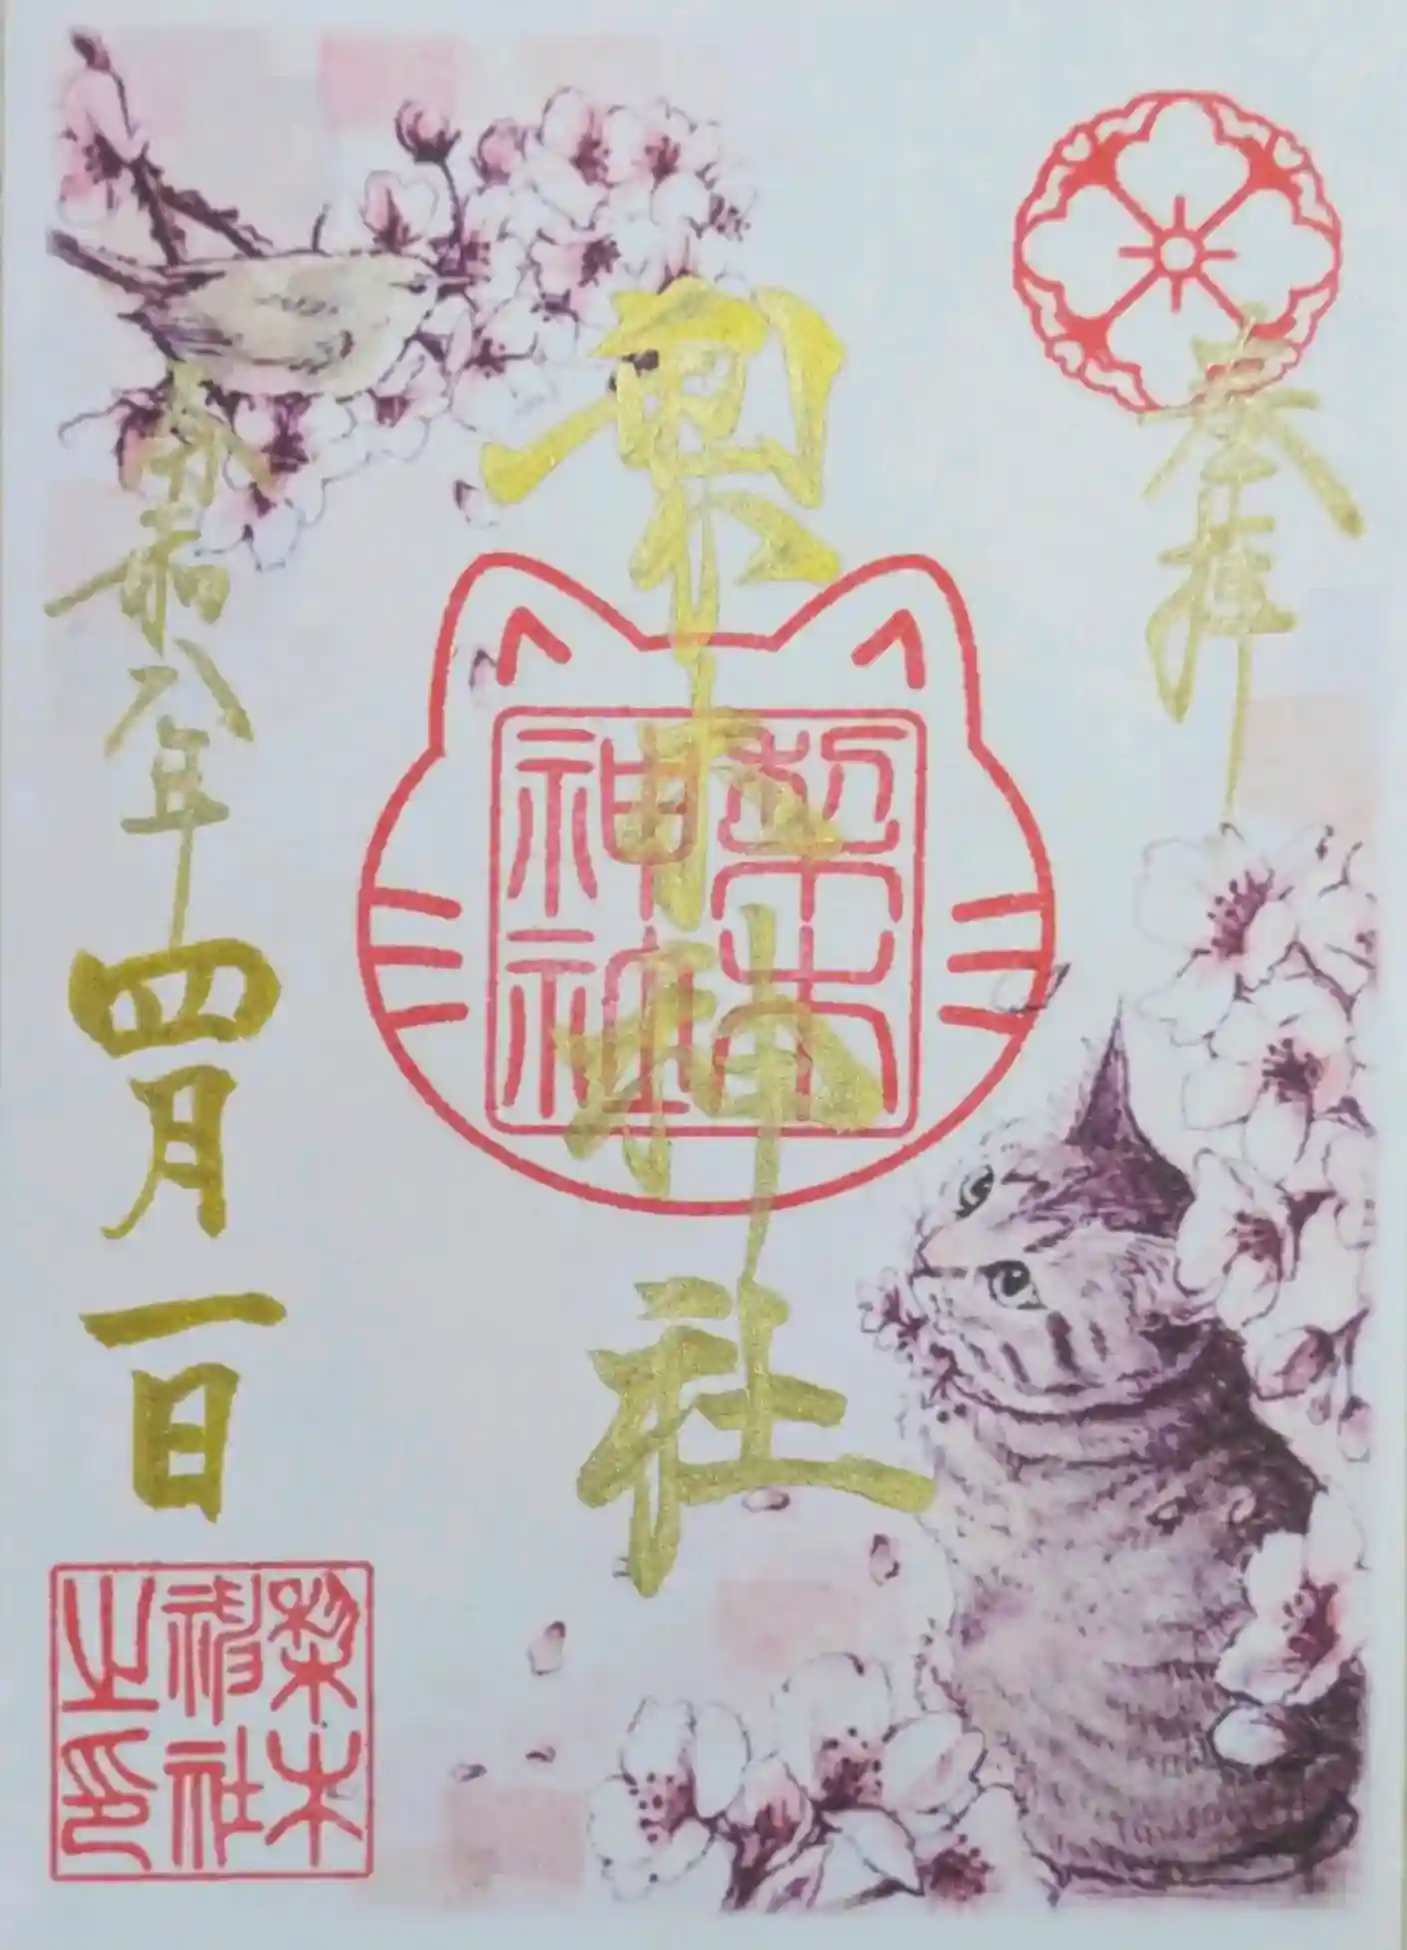 奉拝
梨木神社
梨木
神社
令和八年四月一日
梨木
神社
之印